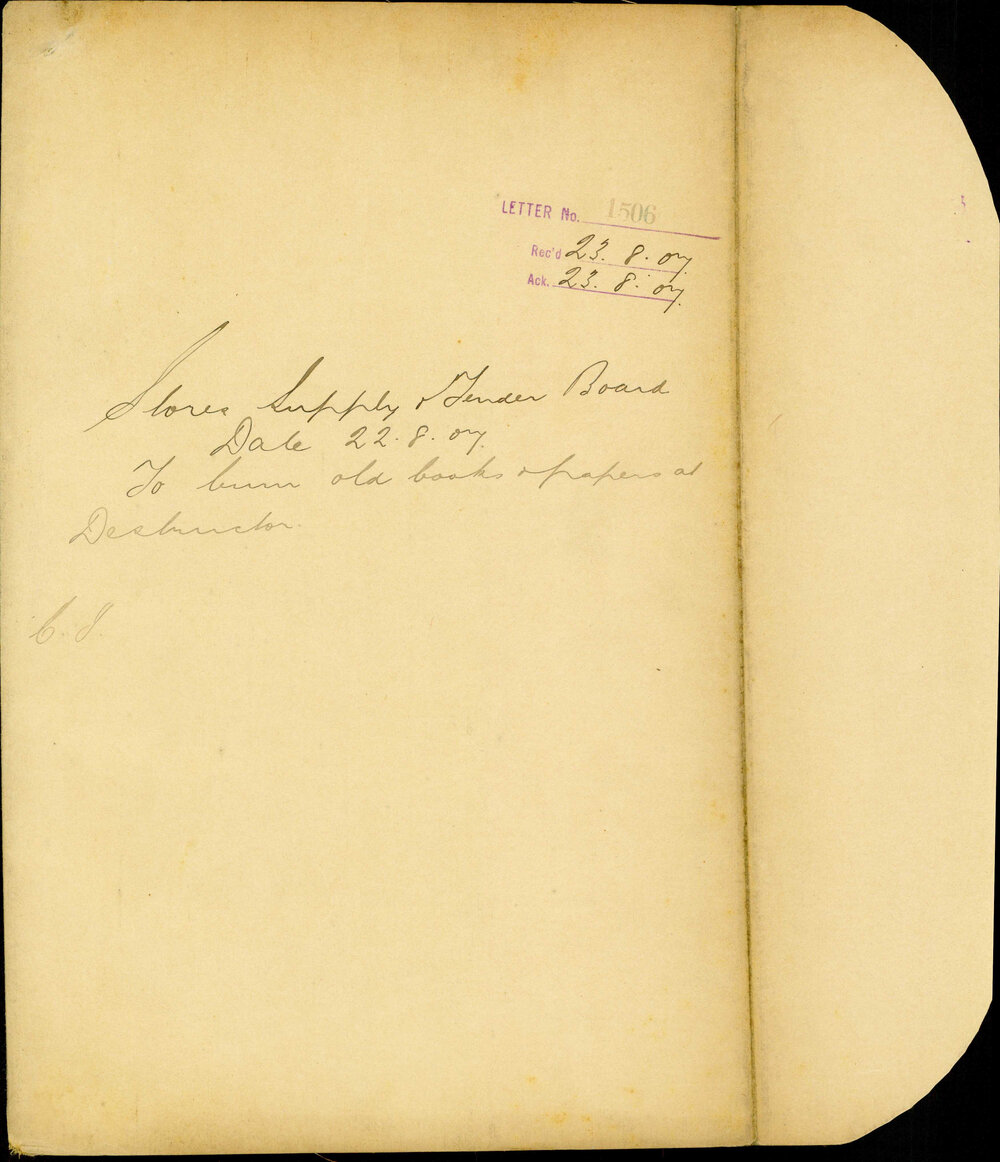 LETTER No. 1506
Rec'd 23. 8. 07.
Ack. 23. 8. 07.
Stores Supply & Tender Board
Date 22. 8. 07.
To burn old books & papers at
Destructor.